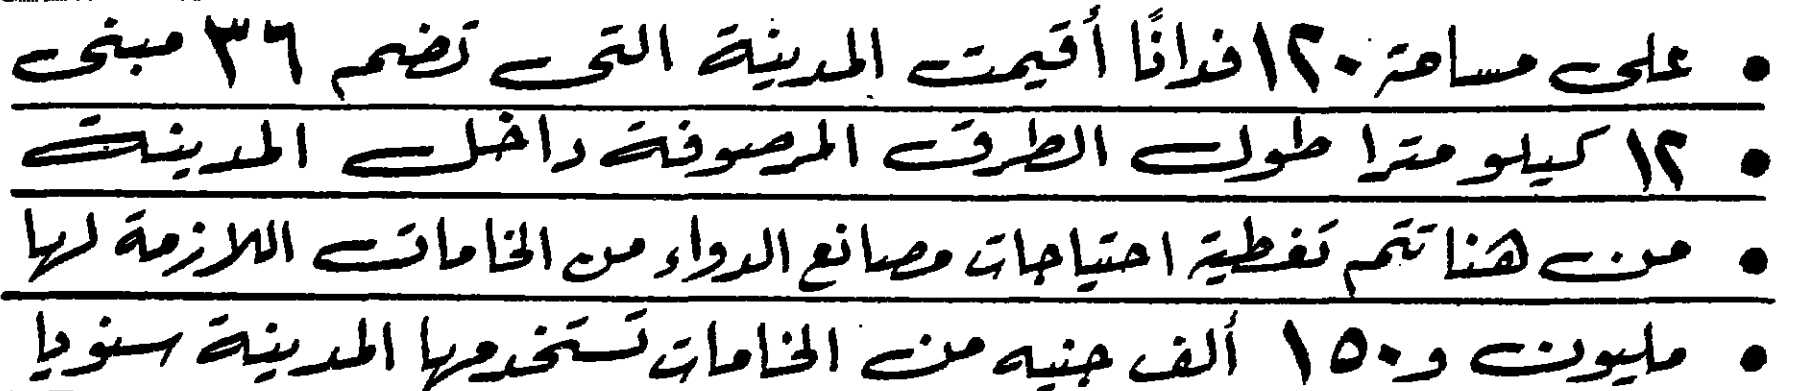 • على مساحة ١٢٠ فدانًا أقيمت المدينة التى تضم ٣٦ مبنى
• ١٢ كيلو مترا طول الطرق المرصوفة داخل المدينة
• من هنا تتم تغطية احتياجات مصانع الدواء من الخامات اللازمة لها
• مليون و١٥٠ ألف جنيه من الخامات تستخدمها المدينة سنويا